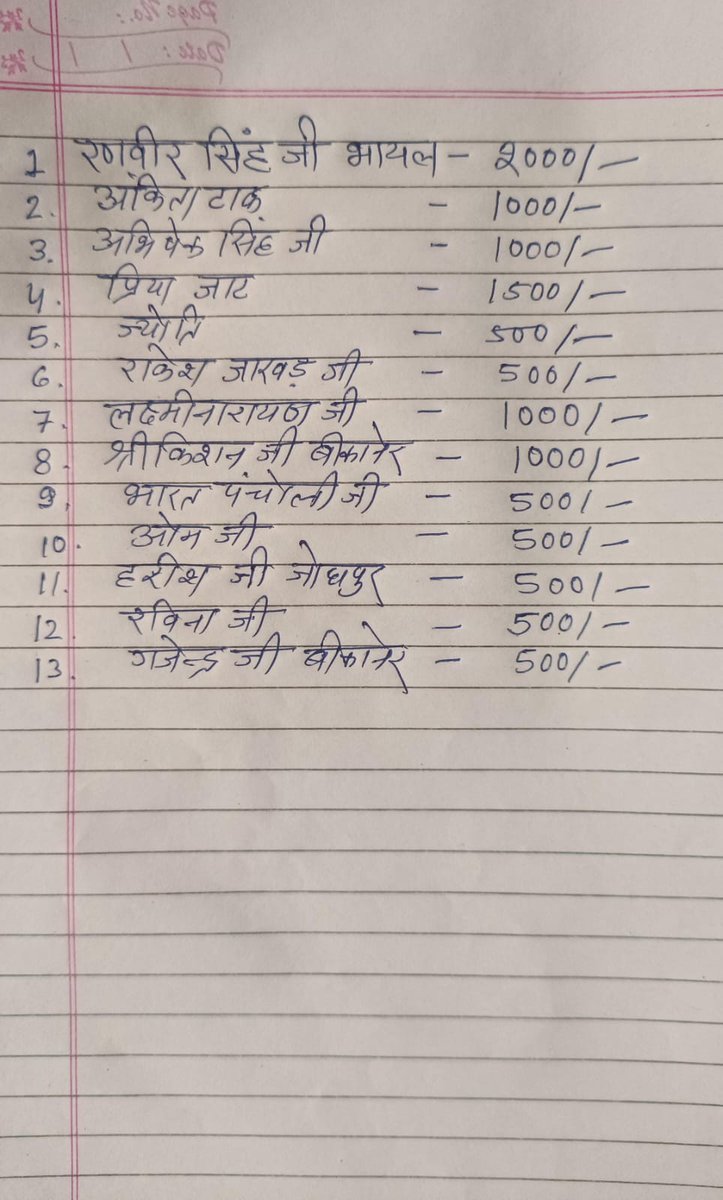 Page No.:
Date: / /
1 रणवीर सिंह जी भायल - 2000/-
2. अंकिता टाक - 1000/-
3. अभिषेक सिंह जी - 1000/-
4. प्रिया जाट - 1500/-
5. ज्योति - 500/-
6. राकेश जाखड़ जी - 500/-
7. लक्ष्मीनारायण जी - 1000/-
8. श्री किशन जी बीकानेर - 1000/-
9. भारत पंचोली जी - 500/-
10. ओम जी - 500/-
11. हरीश जी जोधपुर - 500/-
12. रविना जी - 500/-
13. गजेन्द्र जी बीकानेर - 500/-